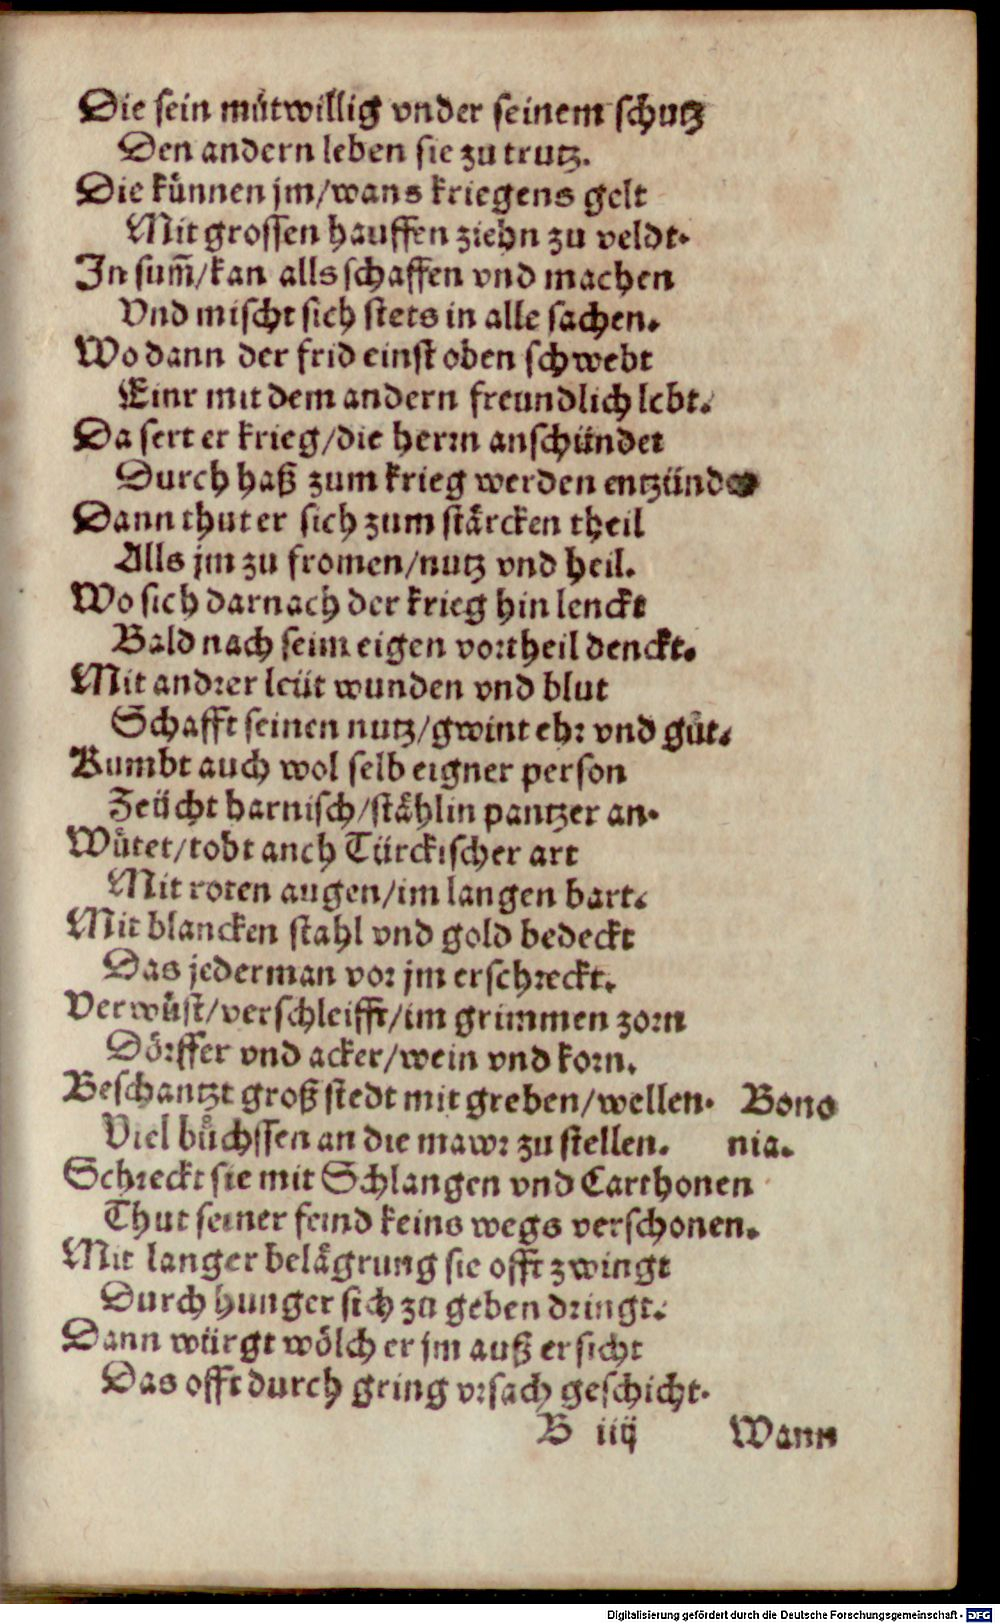 Die sein mütwillig vnder seinem schutz
Den andern leben sie zu trutz.
Die künnen jm/wans kriegens gelt
Mit grossen hauffen ziehn zu veldt.
In sum̄/kan alls schaffen vnd machen
Vnd mischt sich stets in alle sachen.
Wo dann der frid einst oben schwebt
Einr mit dem andern freundlich lebt.
Da sert er krieg/die herrn anschündet
Durch haß zum krieg werden entzünd
Dann thut er sich zum stärcken theil
Alls jm zu fromen/nutz vnd heil.
Wo sich darnach der krieg hin lenckt
Bald nach seim eigen vortheil denckt.
Mit andrer leüt wunden vnd blut
Schafft seinen nutz/gwint ehr vnd gůt.
Kumbt auch wol selb eigner person
Zeücht harnisch/stählin pantzer an.
Wütet/tobt anch Türckischer art
Mit roten augen/im langen bart.
Mit blancken stahl vnd gold bedeckt
Das jederman vor jm erschreckt.
Verwüst/verschleifft/im grimmen zorn
Dörffer vnd acker/wein vnd korn.
Beschantzt groß stedt mit greben/wellen. Bono
Viel büchssen an die mawr zu stellen. nia.
Schreckt sie mit Schlangen vnd Carthonen
Thut seiner feind keins wegs verschonen.
Mit langer belägrung sie offt zwingt
Durch hunger sich zu geben dringt.
Dann würgt wölch er jm auß ersicht
Das offt durch gring vrsach geschicht.
B iiij Wann
Digitalisierung gefördert durch die Deutsche Forschungsgemeinschaft - DFG